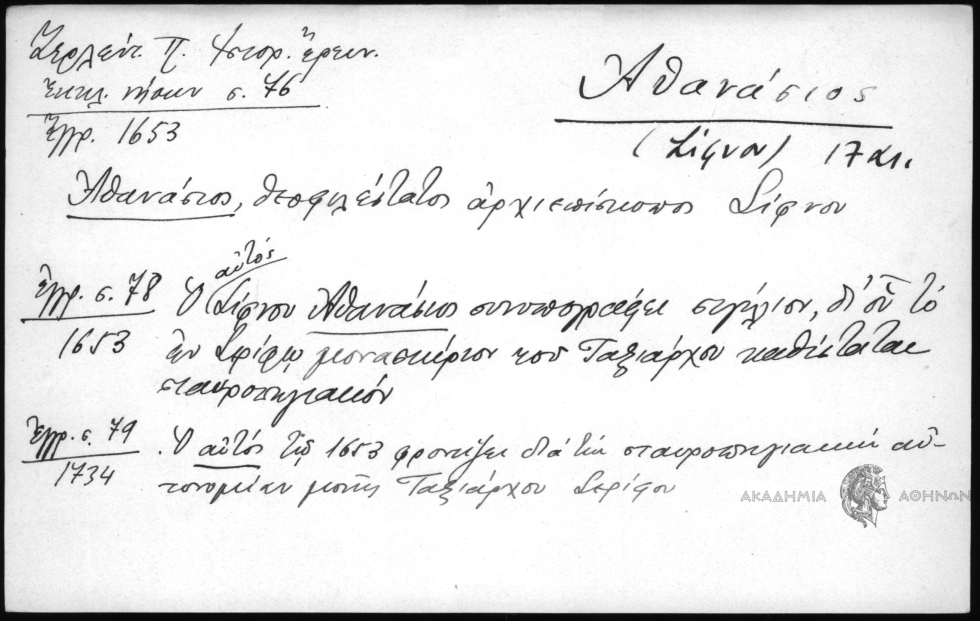 Ζερλέντ. Π. Ἱστορ. Ἔρευν.
Ἐκκλ. νήσων σ. 76
Ἔγγρ. 1653
Ἀθανάσιος
(Σίφνου) 17 αι.
Ἀθανάσιος, θεοφιλέστατος ἀρχιεπίσκοπος Σίφνου
Ἔγγρ. σ. 78
1653
Ὁ αὐτός Σίφνου Ἀθανάσιος συνυπογράφει σιγίλιον, δι' οὗ τό
ἐν Σερίφῳ μοναστήριον του Ταξιάρχου καθίσταται
σταυροπηγιακόν
Ἔγγρ. σ. 79
1734
. Ὁ αὐτός τῷ 1653 φροντίζει διά τήν σταυροπηγιακήν αὐ-
τονομίαν μονῆς Ταξιάρχου Σερίφου
ΑΚΑΔΗΜΙΑ ΑΘΗΝΩΝ